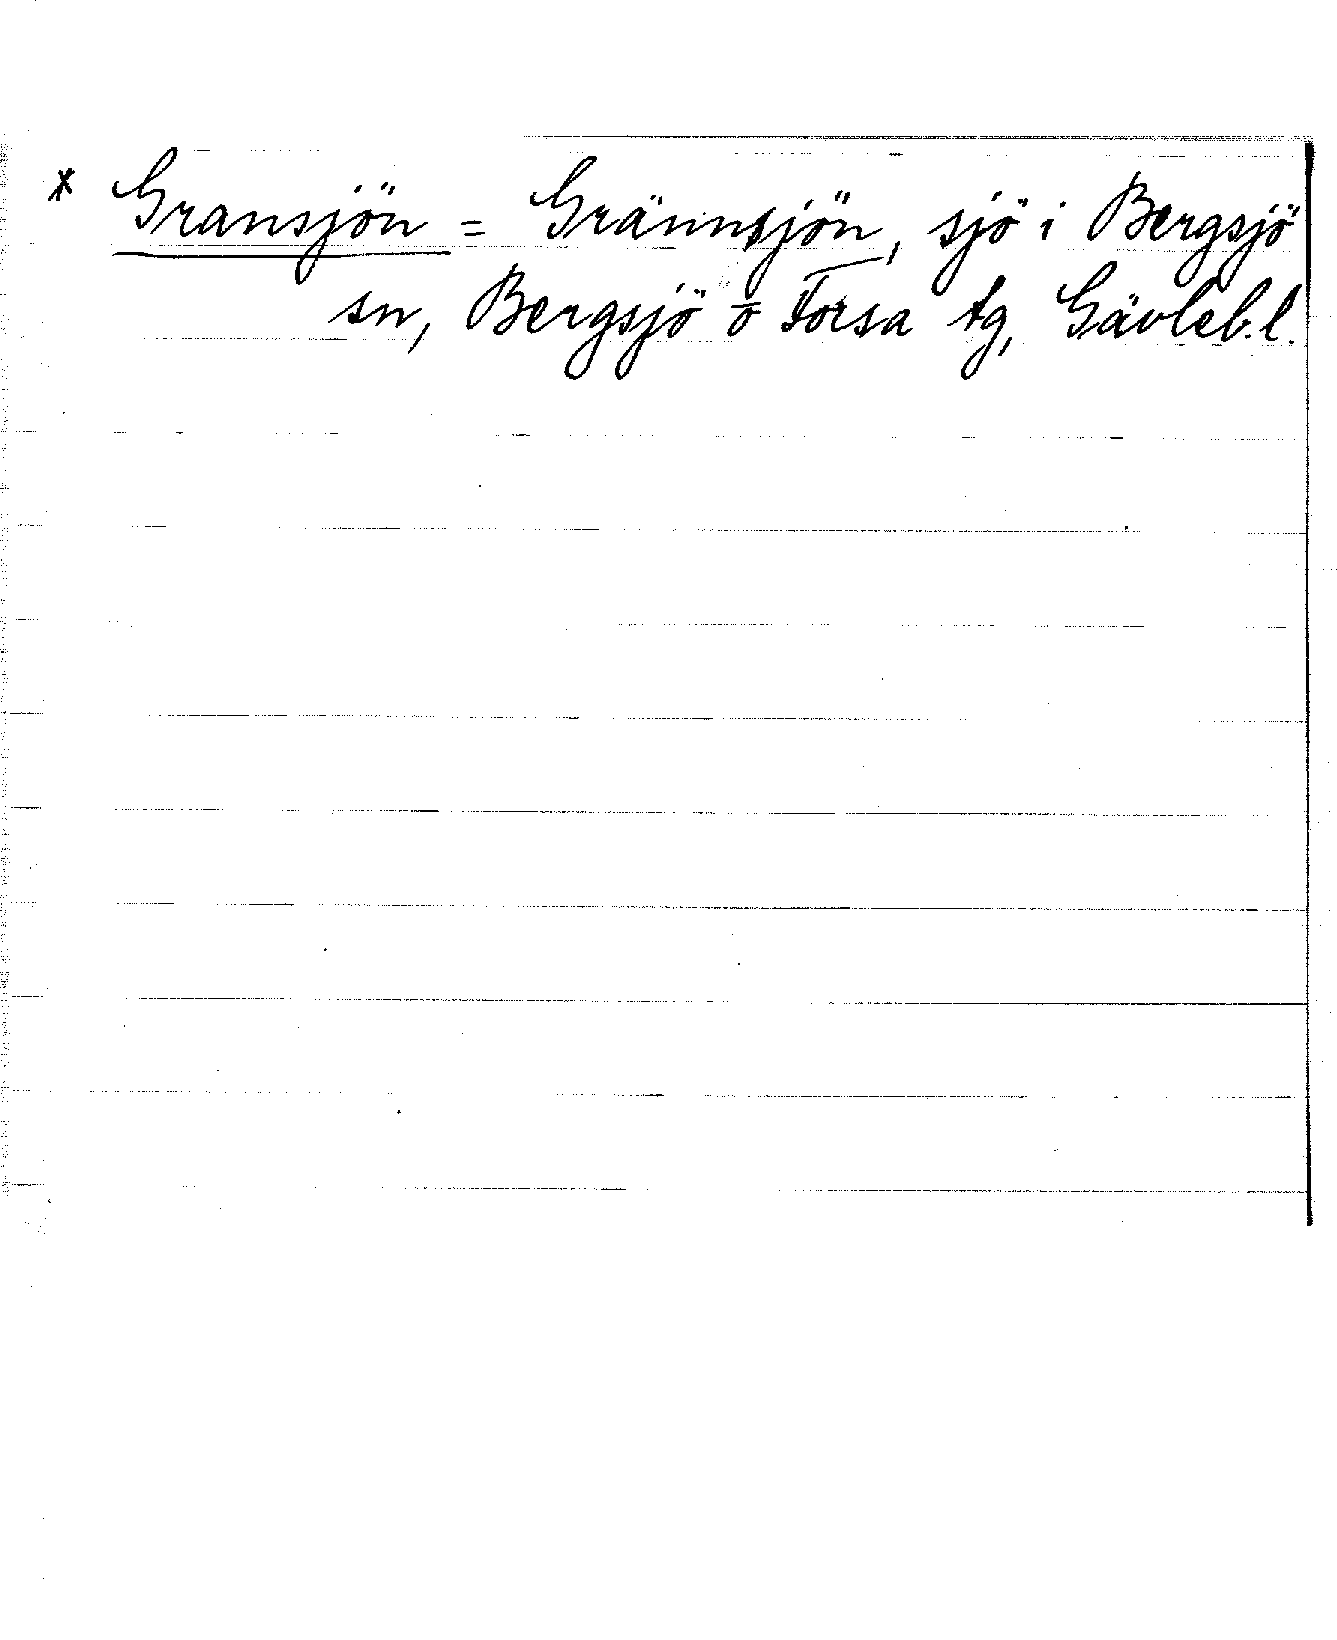 * Gransjön = Grännsjön, sjö i Bergsjö
sn, Bergsjö o Forsa tg, Gävleb.l.